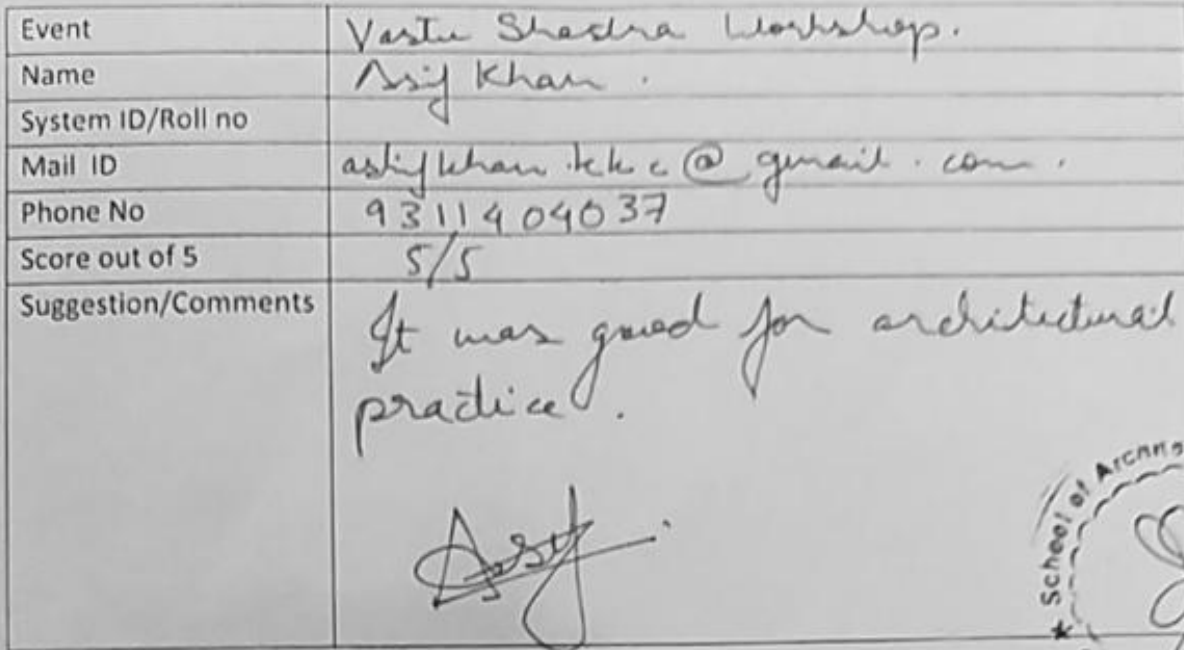 Event Vastu Shastra Workshop.
Name Asif Khan.
System ID/Roll no
Mail ID @gmail.com.
Phone No 9311404037
Score out of 5 5/5
Suggestion/Comments It was good for architectural
practice.
Asif
★ School of